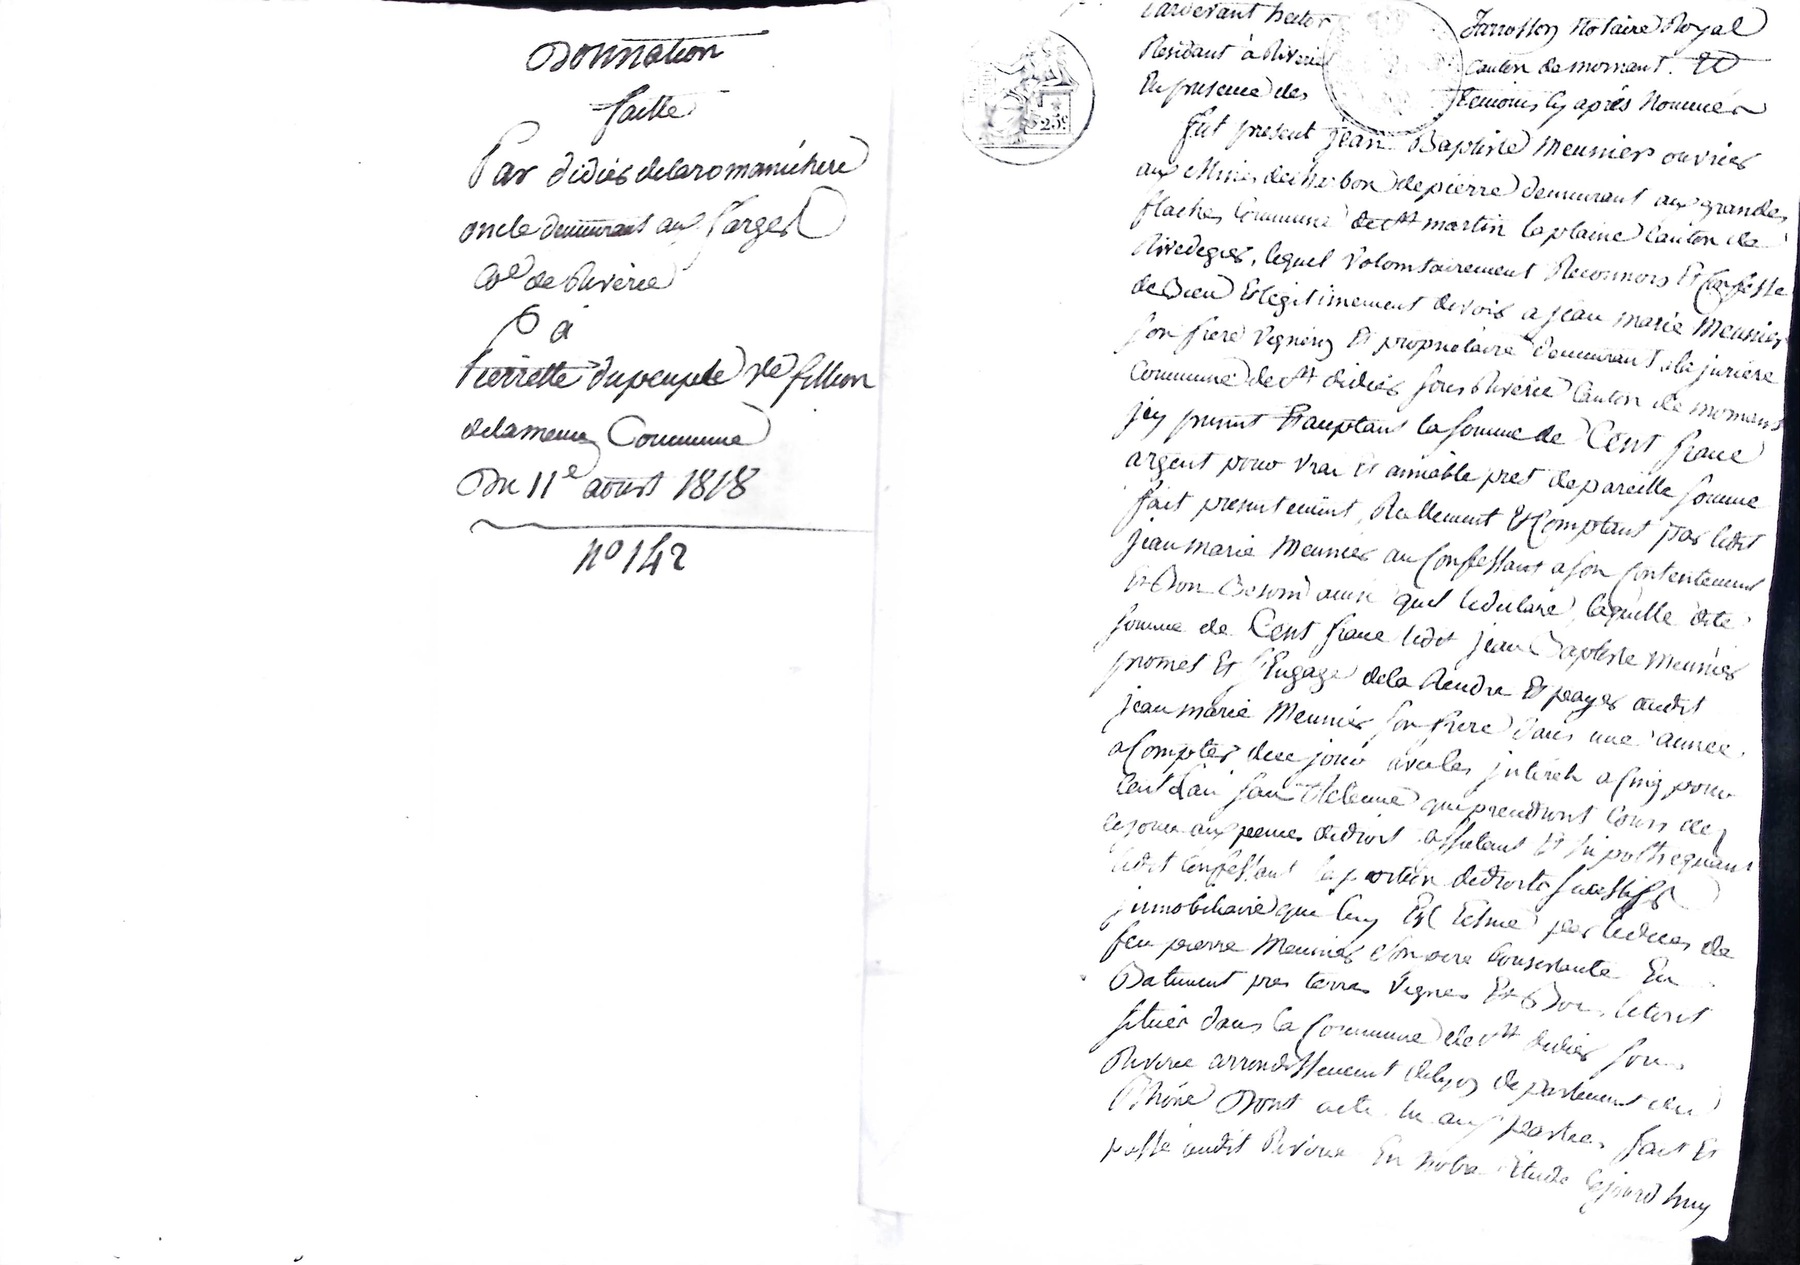 Donnation
faitte
Par didiér delaromanichere
oncle demeurant aux farges
Co^e de Riverie
à
Pierrette dupeuple v^e fillion
delameme Commune
Du 11^e aoust 1818
n° 142
Pardevant hector
Jarrosson Notaire Royal
Residant à Riverie
Canton de mornant. Et
En presence des
temoins Cy après Nommés
fut present Jean Baptiste Meunier ouvrier
aux Mines decharbon depierre demeurant aux grandes
flaches Commune de S^t martin laplaine Canton de
Rivedegier, lequel Volontairement Reconnois Et Confesse
debien Et legitimement devoir a jean marie Meunier
son frere Vigneron Et propriétaire demeurant ala juriere
Commune de S^t didier sous Riverie Canton de mornant
jcy present Et acceptant la somme de Cent franc
argent pour vrai Et amiable pret depareille somme
fait presentement, Reellement Et Comptant par ledit
jean marie Meunier au Confessant a son Contentement
Et Bon Besoin ainsi quil ledeclare, laquelle dite
somme de Cent franc ledit jean Baptiste Meunier
promet Et sEngage dela Rendre Et payer audit
jean marie Meunier son frere dans une année
aCompter dece jour avecles jnterêts a Cinq pour
Cent Lan sans Retenue qui prendront Cours de
cejour aux peines dedroit affectant Et hipothequant
ledit Confessant la portion dedroits successifs
jmmobiliaire que luy Est Echue par ledeces de
feu pierre Meunier son pere Consistante En
Batiment pres terres Vignes Et Bois, letout
situés dans la Commune de S^t didier sous
Riverie arrondissement delyon departement du
Rhône Dont acte lu aux parties, fait Et
passé audit Riverie En notre Etude Cejourd'huy